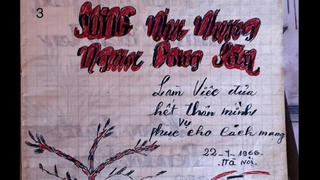 3
SỐNG NHƯ NHỮNG
NGƯỜI ĐANG SỐNG
Làm Việc đưa
hết thân mình
vụ
phục cho Cách mạng
22-7-1966
Hà Nội